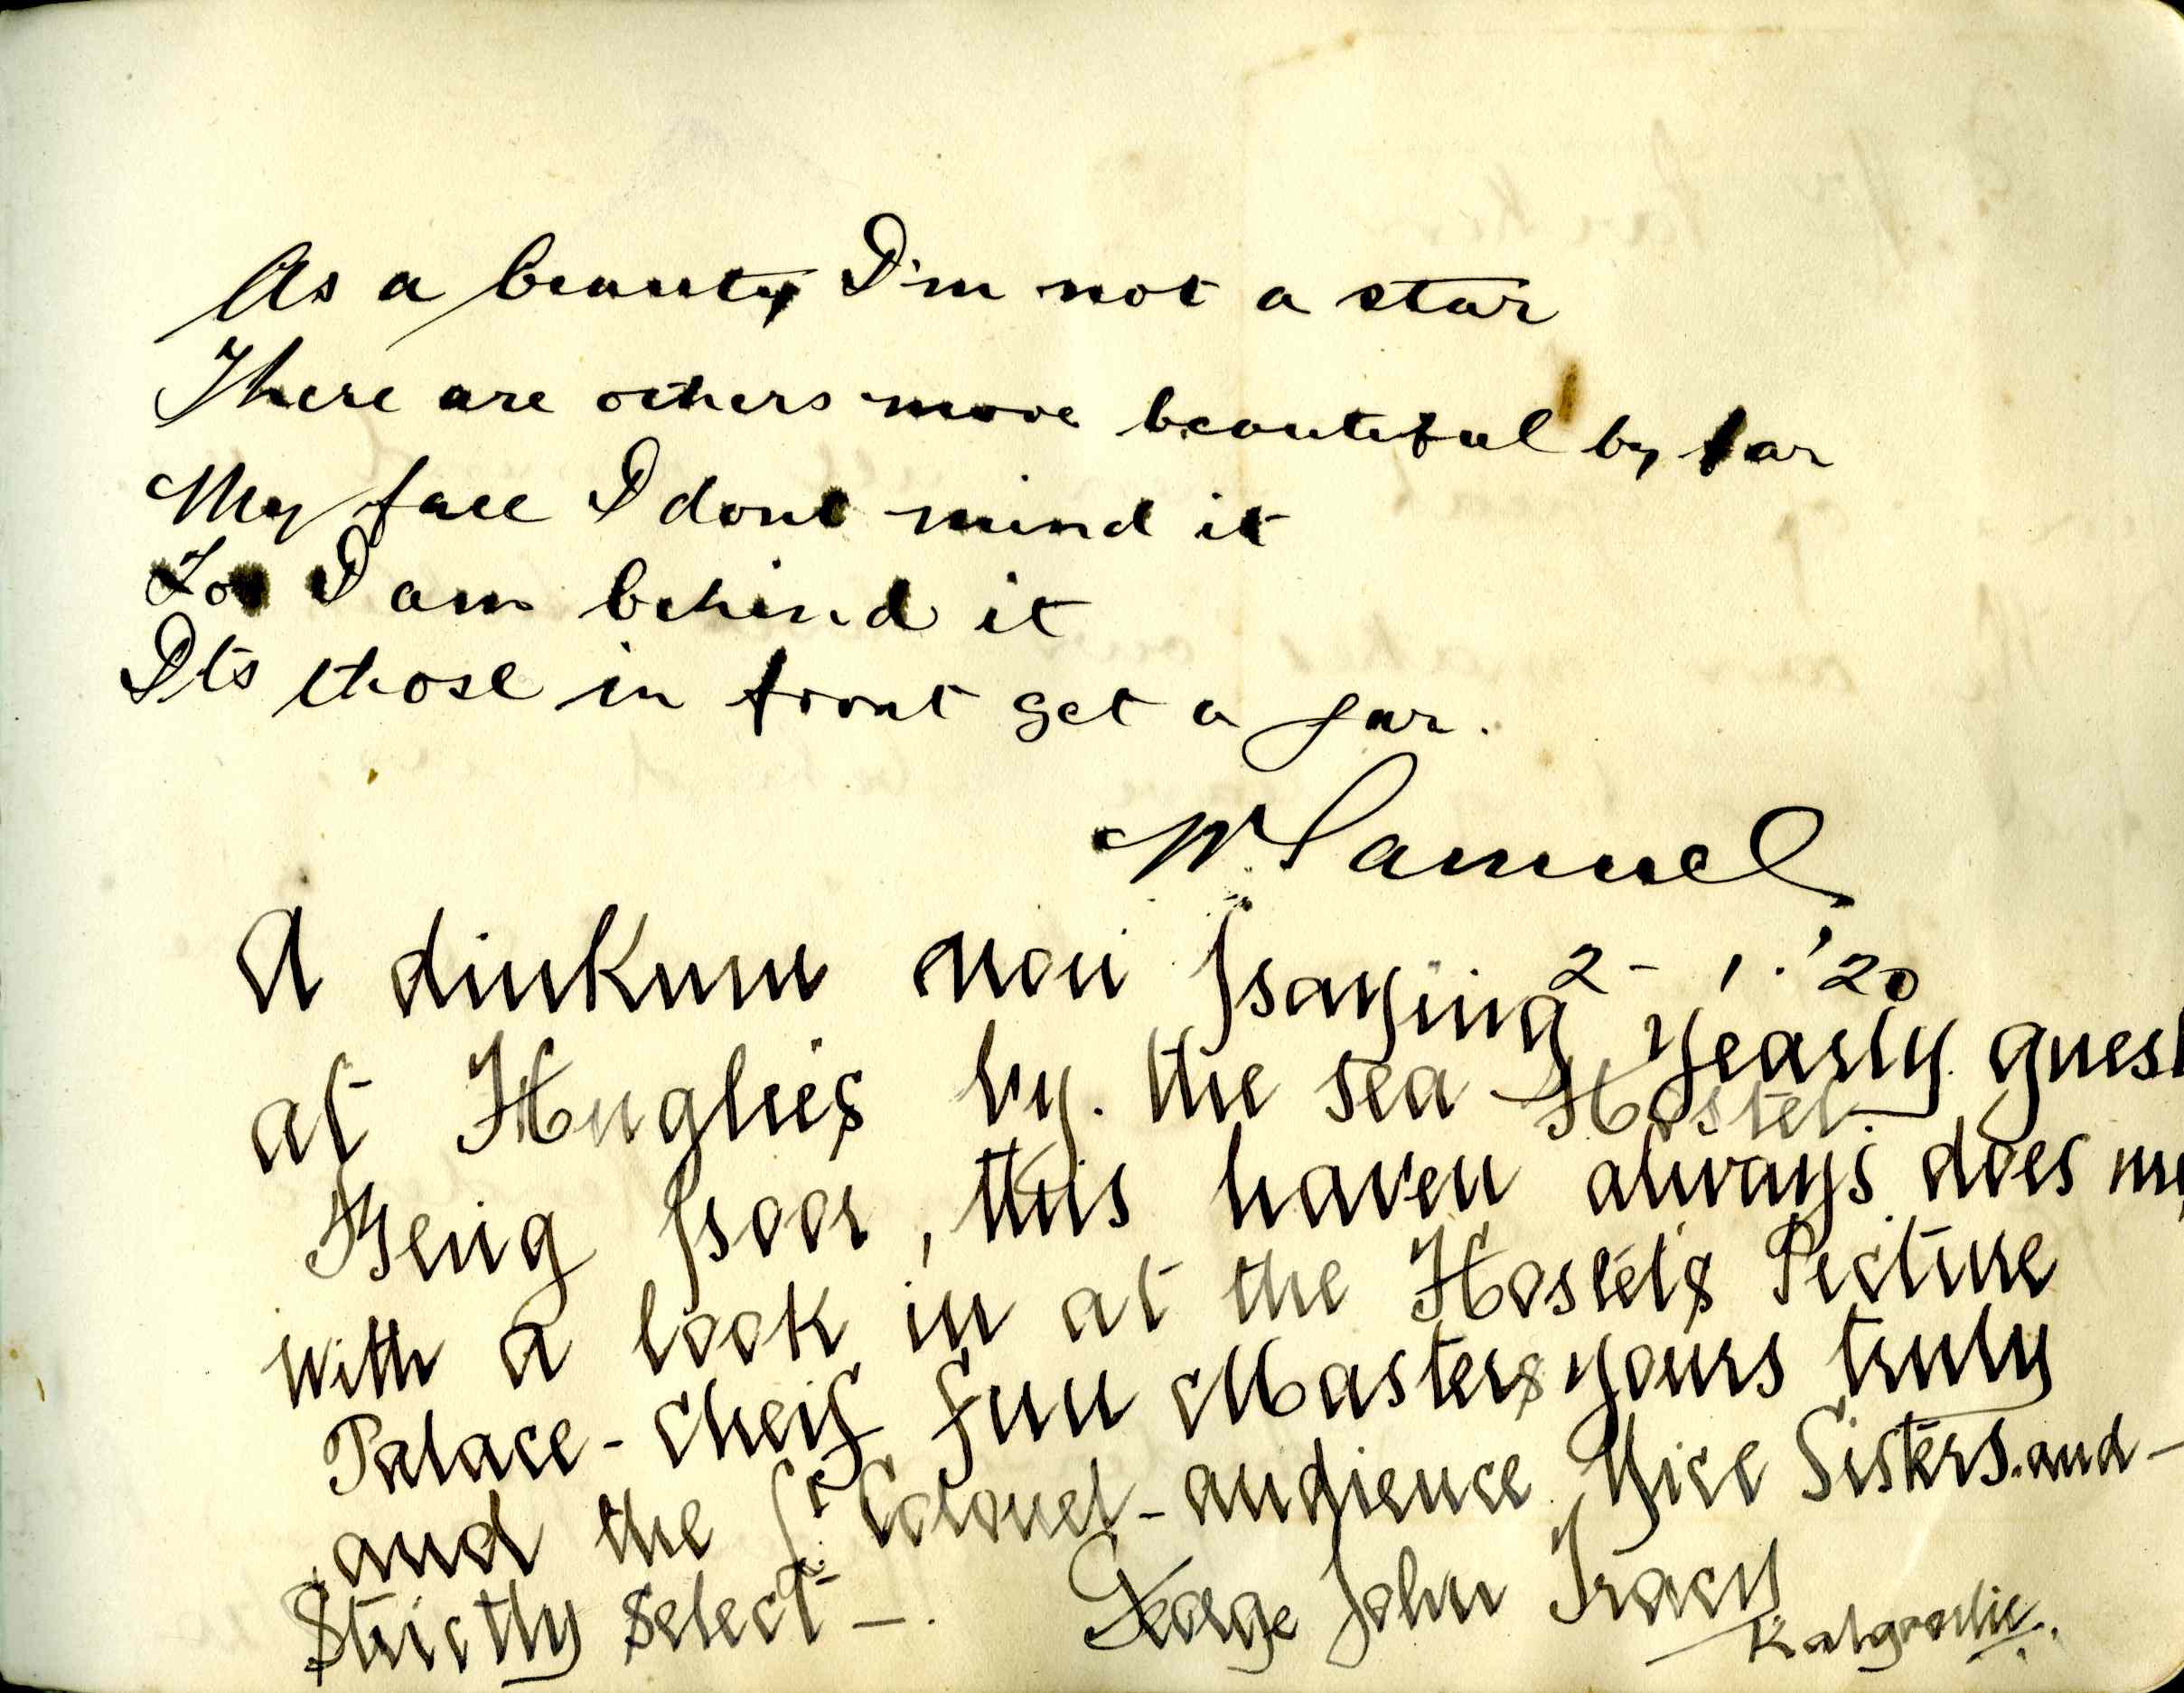 As a beauty I'm not a star
There are others more beautiful by far
My face I dont mind it
For I am behind it
Its those in front get a jar.
W Samuel
2 - 1. '20
A dinkum non paying yearly guest
at Hughies by. the sea Hostel.
Being poor, this haven always does me
with a look in at the Hostel's Picture
Palace - Cheif Fun Masters yours truly
and the Lt Colonel - audience Nice Sisters. and -
Strictly Select - .
George John Tracy
Kalgoorlie.